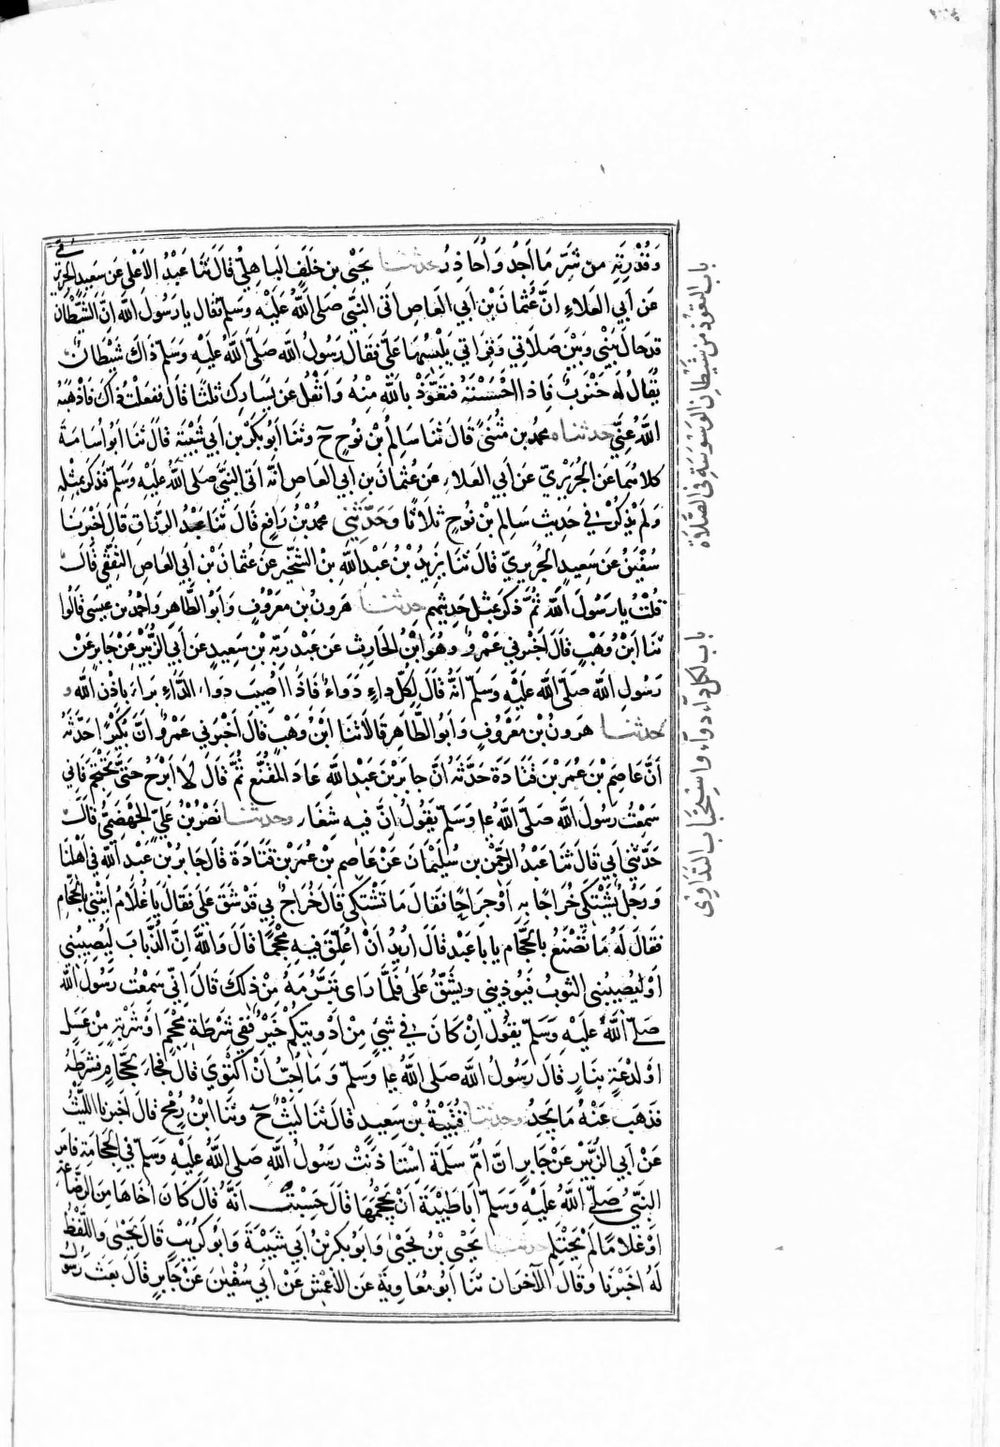 وَقُدْرَتِهِ من شَرِّ مَا أَجِدُ وَأُحَاذِرُ حدثنا يَحْيَى بن خَلَفٍ البَاهِلِيُّ قَالَ ثَنَا عَبْدُ الاَعْلَى عَن سَعِيدٍ الجُرَيْرِيِّ
عَن اَبي العَلاءِ انَّ عُثْمَانَ بْنَ اَبي العَاصِ اتى النَّبيَّ صَلى اللَّهُ عَلَيْه وَسَلم فَقَال يا رَسُولَ اللَّه اِنَّ الشَّيْطَانَ
قد حَالَ بَيْني وبَيْنَ صَلَاتِي وَقِراتي يَلْبِسُهَا عَلَيَّ فَقَال رَسُولُ اللَّه صَلَّى اللَّهُ عَلَيْهِ وَسَلَّم ذَاكَ شَيْطَانٌ
يُقَالُ لَه خَنْزِبٌ فَاِذَا احْسَسْتَهُ فَتَعَوَّذْ بِاللَّهِ مِنْهُ وَاتْفُل عَن يَسَارِك ثلثًا قَالَ ففَعَلْتُ ذَاكَ فَاَذْهَبَهُ
اللَّهُ عَنِّي حدثناه محمد بن مُثَنًى قَالَ ثَنَا سَالِمُ بْن نُوحٍ ح وثَنَا اَبُو بَكْرِ بن اَبي شَيْبَةَ قَالَ ثَنَا اَبُو اُسَامَةَ
كِلَاهُمَا عَن الجُرَيْرِيّ عَن اَبي العَلاءِ عَن عُثْمَانَ بن اَبي العَاصِ انَّه اَتَى النَّبيَّ صَلى اللَّهُ عَلَيْه وَسَلَّم فَذَكَرَ بمِثْلِهِ
وَلَمْ يَذْكُرْ في حَدِيث سَالِم بْن نُوحٍ ثَلَاثًا وَحَدَّثَنِي محمدُ بْنُ رَافِعٍ قَالَ ثَنَا عَبْدُ الرَّزَاق قَالَ اَخْبَرَنَا
سُفْيٰنُ عَن سَعِيدٍ الجُرَيْرِيّ قَالَ ثَنَا يَزِيدُ بْنُ عَبْدِ اللَّهِ بْن الشِّخِّيرِ عَن عُثْمَانَ بْن اَبي العَاصِ الثَّقَفِي قَالَ
قُلْتُ يا رَسُولَ اللَّهِ ثُمَّ ذَكَرَ بمِثْل حَدِيثِهِم حدثنا هَرونُ بن مَعْرُوُفٍ وَاَبُو الطَّاهِرِ وَاحْمَد بن عيسَى قَالُوا
ثَنَا ابْنُ وَهْبٍ قَالَ اَخْبَرني عَمْرٌو وَهُوَ ابْنُ الحَارِثِ عَن عَبْدِ رَبِّهِ بْن سَعِيدٍ عَن اَبي الزُّبَيْرِ عَنْ جَابِرٍ عَنْ
رَسُولِ اللَّه صَلَّى اللَّه عَلَيْه وَسَلَّم اَنَّهُ قَالَ لِكُلِّ دَاءٍ دَوَاءٌ فَاِذَا اُصِيبَ دَوَاءُ الدَّاءِ بَرَاَ بِاِذْنِ اللَّه
حدثنا هَرونُ بْن مَعْرُوفٍ وَاَبُو الطَّاهِرِ قَالَا ثَنَا ابْنُ وَهْبٍ قَالَ اَخْبَرَني عَمْرٌو اَنَّ بُكَيْرًا حَدَّثَهُ
اَنَّ عَاصِمَ بْن عُمَرَ بْنِ قَتَادَةَ حَدَّثَهُ اَنَّ جابِرَ بْنَ عَبْدِ اللَّهِ عَادَ المُقَنَّعَ ثُمَّ قَالَ لَا اَبْرَحُ حَتَّى تَحْتَجِمَ فَاِني
سَمِعْتُ رَسُولَ اللَّه صَلَّى اللَّهُ ع‍ وَسَلَّم يَقُولُ اِنَّ فِيهِ شِفَاءً وحدثنا نَصْرُ بْنُ عَلِيٍّ الجَهْضَمِيُّ قَالَ
حَدَّثَنِي اَبِي قَالَ ثَنَا عَبْدُ الرَّحْمٰنِ بْنُ سُلَيْمَانَ عَنْ عَاصِمِ بْنِ عُمَرَ بْنِ قَتَادَةَ قَالَ جَابِرُ بْنُ عَبْد اللَّه في اَهْلِنَا
وَرَجُلٌ يَشْتَكِي خُرَاجًا بِهِ اَوْ جِرَاحًا فَقَالَ مَا تَشْتَكِي قَالَ خُرَاجٌ بِي قَدْ شَقَّ عَلَيَّ فَقَالَ يَا غُلَامُ ائْتِنِي بِحَجَّامٍ
فَقَالَ لَهُ مَا تَصْنَعُ بالحَجَّامِ يا با عَبْدِ اللَّه قَالَ اُرِيدُ اَنْ اُعَلِّقَ فِيهِ مِحْجَمًا قَالَ وَاللَّهِ اِنَّ الذُّبَابَ لَيُصِيبُنِي
اَوْ لَيُصِيبُنِي الثَّوبُ فَيُوذِيني ويَشُقُّ عَلَيَّ فَلَمَّا رَاى تَبَرُّمَهُ مِنْ ذلِكَ قَالَ اِنِّي سَمِعْتُ رَسُولَ اللَّه
صَلَّى اللَّهُ عَلَيْهِ وَسَلَّم يَقُولُ اِنْ كَانَ في شَيْءٍ مِنْ اَدْوِيَتِكُمْ خَيْرٌ فَفِي شَرْطَةِ مِحْجَمٍ اَوْ شَرْبَةٍ مِنْ عَسَلٍ
اَوْ لَذْعَةٍ بِنَارٍ قَالَ رَسُولُ اللَّه صَلى اللَّهُ ع‍ وَسَلَّمَ وَمَا اُحِبُّ اَنْ اَكْتَوِيَ قَالَ فَجَاءَ بحَجَّامٍ فَشَرَطَهُ
فَذَهَبَ عَنْهُ مَا يَجِدُ وحدثنا قُتَيْبَةُ بْن سَعِيدٍ قَالَ ثَنَا لَيْثٌ ح وثَنَا ابْنُ رُمْحٍ قَالَ اَخْبَرَنَا اللَّيْثُ
عَنْ اَبِي الزُّبَيْرِ عَنْ جَابِرٍ اِنَّ اُمَّ سَلَمَةَ اسْتَاذَنَتْ رَسُولَ اللَّهِ صَلى اللَّهُ عَلَيْهِ وَسَلَّم في الحِجَامَةِ فَاَمَرَ
النَّبيُّ صَلَّى اللَّهُ عَلَيْهِ وَسَلَّم اَبَا طَيْبَةَ اَنْ يَحْجِمَهَا قَالَ حَسِبْتُ اَنَّهُ قَالَ كَانَ اَخَاهَا مِنَ الرَّضَاعَةِ
اَوْ غُلَامًا لَمْ يَحْتَلِم حدثنا يَحْيَى بْنُ يَحْيَى وَاَبُو بَكْرِ بْنُ اَبي شَيْبَةَ وَاَبُو كُرَيْبٍ قَالَ يَحْيَى وَاللَّفْظُ
لَهُ اَخْبَرَنَا وَقَالَ الآخَرَان ثَنَا اَبُو مُعَاوِيَةَ عَن الاَعْمَشِ عَنْ اَبِي سُفْيٰنَ عَنْ جَابِرٍ قَالَ بَعَثَ رَسُولُ
باب التعوذ من شيطان الوسوسة في الصلاة
باب لكل داء دواء واستحباب التداوي